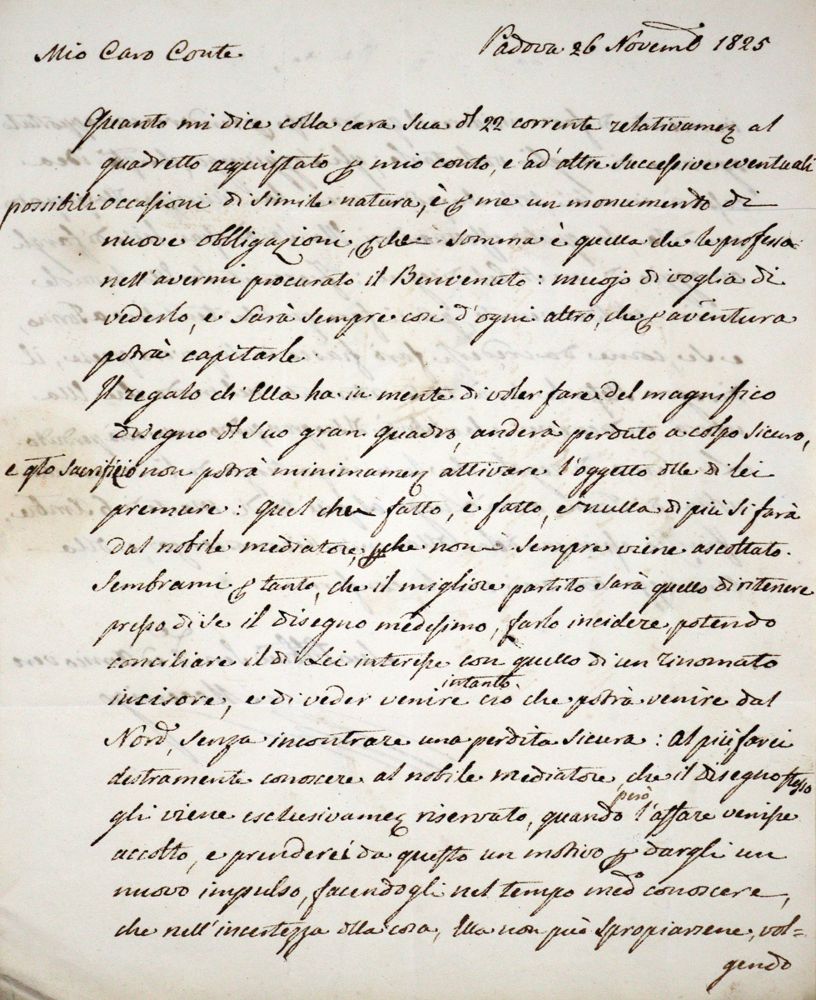 Mio Caro Conte
Padova 26 Novemb 1825
Quanto mi dice colla cara sua dl 22 corrente relativame al
quadretto aquistato p mio conto, e ad'altre successive eventuali
possibili occasioni di simile natura, è p me un monumento di
nuove obbligazioni, pche somma è quella che le professo
nell'avermi procurato il Benvenuto: muojo di voglia di
vederlo, e sarà sempre così d'ogni altro, che p aventura
potrà capitarle.
Il regalo ch'Ella ha in mente di voler fare del magnifico
disegno dl suo gran quadro, anderà perduto a colpo sicuro,
e qto sacrifizio non potrà minimame attivare l'oggetto dlle di lei
premure: quel che fatto, è fatto, e nulla di più si farà
dal nobile mediatore, pche non sempre viene ascoltato.
Sembrami p tanto, che il migliore partito sarà quello di ritenere
presso di se il disegno medesimo, farlo incidere, potendo
conciliare il di Lei interesse con quello di un rinomato
incisore, e di veder venire intanto ciò che potrà venire dal
Nord, senza incontrare una perdita sicura: al più, farei
destramente conoscere al nobile mediatore, che il disegno stesso
gli viene esclusivame riservato, quando però l'affare venisse
accolto, e prenderei da questo un motivo p dargli un
nuovo impulso, facendogli nel tempo medo conoscere,
che nell'incertezza dlla cosa, Ella non può spropiarsene, vol=
gendo